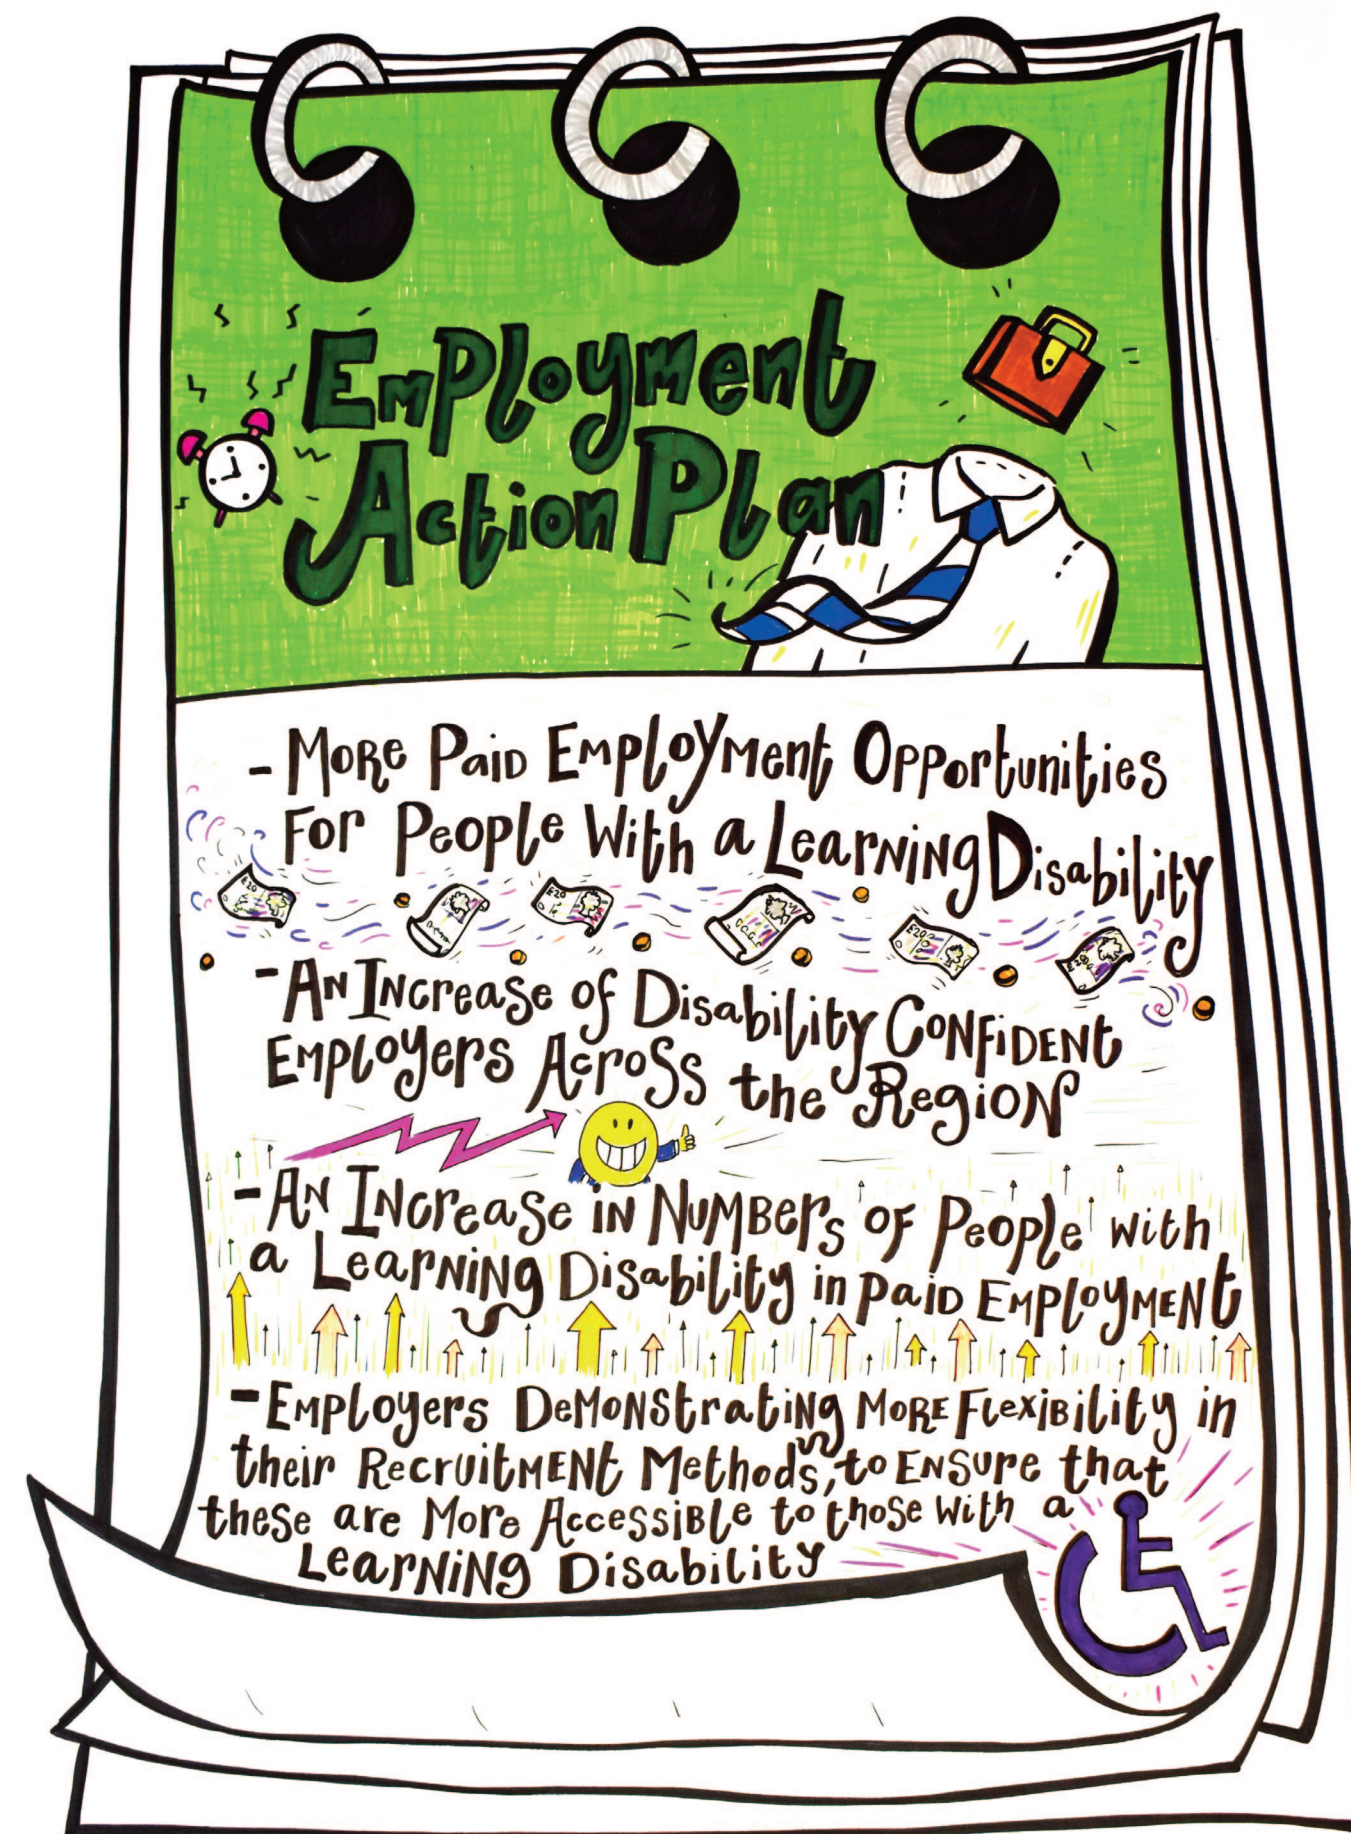 Employment
Action Plan
- More Paid Employment Opportunities
For People With a Learning Disability
£20 £20 £20 £20
- An Increase of Disability Confident
Employers Across the Region
- An Increase in Numbers of People with
a Learning Disability in Paid Employment
- Employers Demonstrating More Flexibility in
their Recruitment Methods, to Ensure that
these are More Accessible to those with a
Learning Disability